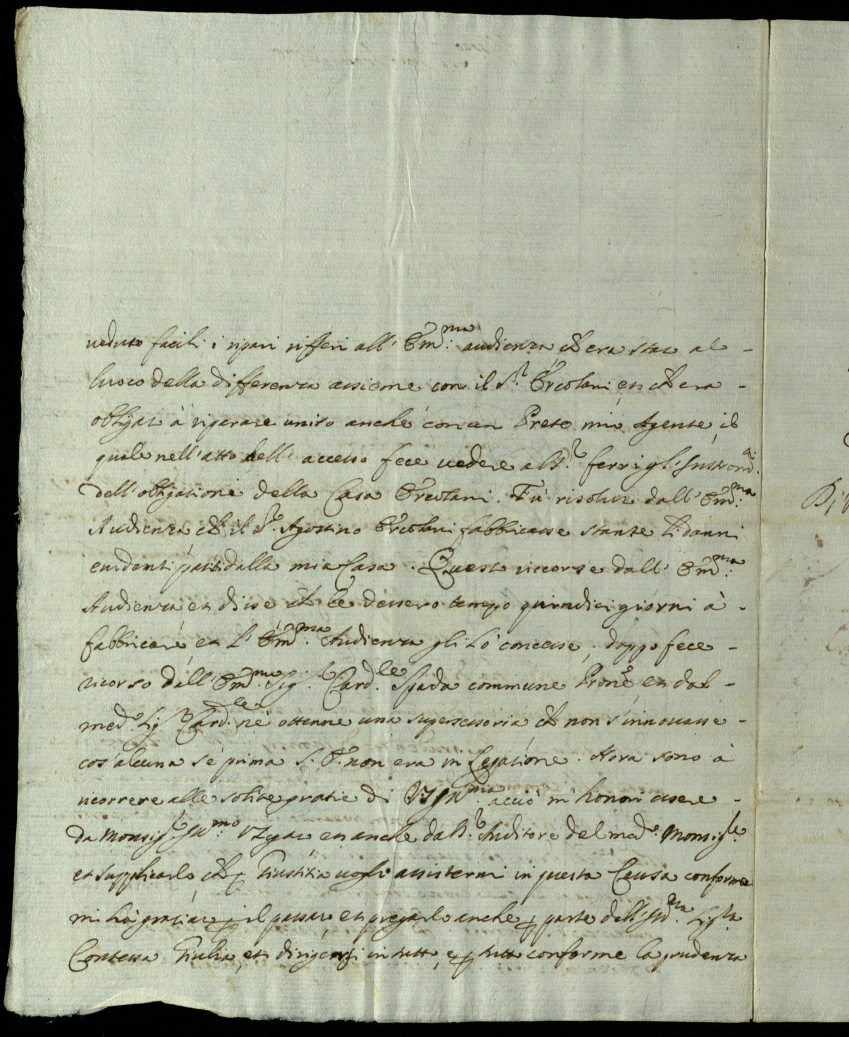 veduto facili i ripari rifferi all' Em.ma audienza ch'era stat al-
luoco della differenza assieme con il S.r Ercolani et ch'era -
obligat à riparare unito anche con un Preto mio Agente, il
quale nell' atto dell' accesso fece vedere al S.r ferri gl' Instrom.ti
dell' obligatione della Casa Ercolani. Fù risolut dall' Em.ma
Audienza ch' il S.r Agostino Ercolani fabbricasse stante li danni
evidenti patiti dalla mia Casa. Questo riccorse dall' Em.ma
Audienza et disse ch' le dessero tempo quindici giorni à -
fabbricare et l' Em.ma Audienza gli lò concesse, doppo fece -
ricorso dall' Em.mo Sig.r Card.le Spada commune Prone et dal -
med.o Sig.r Card.le nè ottenne una supersesoria ch' non s'innovasse -
cos' alcuna sè prima S. E. non era in Legatione. Hora sono à
ricorrere alle solite gratie di V.S. Ill.ma acciò m' honori essere -
da Monsig.r Ill.mo et anche da S.r Auditore del med.o Monsig.re
et supplicarlo ch' p Giustitia voglia assistermi in questa Causa conforme
mi hà gratiat p il passato et pregarlo anche p parte dell' Ill.ma Sig.ra
Contessa Giulia, et dirigersi in tutto, e p tutto conforme la prudenza